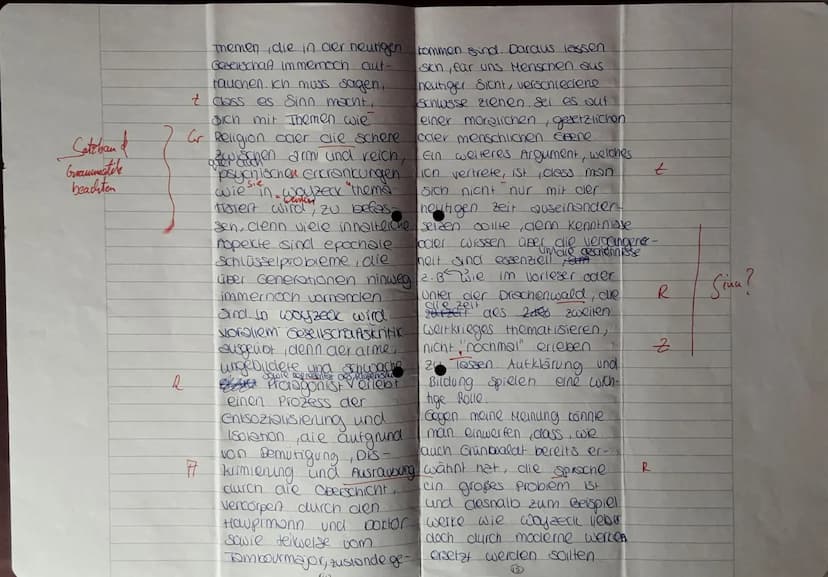 Themen, die in der heutigen
Gesellschaft immernoch auf-
tauchen. Ich muss sagen,
t
dass es Sinn macht,
sich mit Themen wie
Gr
Religion oder die schere
Satzbau &
Grammatik
beachten
zwischen arm und reich,
oder auch
psychischen Erkrankungen
wie sie in "Woyzeck" thema-
werden
tisiert wird, zu befas-
sen, denn viele inhaltliche
Aspekte sind epochale
schlüsselprobleme, die
über Generationen hinweg
immernoch vorhanden
sind. In Woyzeck wird
vorallem Gesellschaftskritik
ausgeübt, denn der arme,
ungebildete und schwache
R
Protagonist erlebt
einen Prozess der
Entsozialisierung und
Isolation, die aufgrund
von Demütigung, Dis-
A
krimierung und Ausraubung
durch die Oberschicht,
verkörpert durch den
Hauptmann und Doktor
sowie teilweise vom
Tambourmajor, zustande ge-
kommen sind. Daraus lassen
sich, für uns Menschen aus
heutiger Sicht, verschiedene
schlüsse ziehen. Sei es auf
einer moralischen, gesetzlichen
oder menschlichen Ebene
Ein weiteres Argument, welches
ich vertrete, ist, dass man
t
sich nicht nur mit der
heutigen Zeit auseinander-
setzen sollte, denn Kenntnisse
oder wissen über die vergangen-
heit sind essenziell,
um die geschehnisse
z.B. wie im Vorleser oder
unter der Drachenwald, die
R
Sinn?
die zeit
des zweiten
Weltkrieges thematisieren,
nicht "nochmal" erleben
Z
zu lassen Aufklärung und
Bildung spielen eine wich-
tige Rolle.
Gegen meine Meinung könnte
man einwerfen, dass, wie
auch Grünwaldt bereits er-
wähnt hat, die sprache
R
ein großes Problem ist
und deshalb zum Beispiel
werke wie Woyzeck lieber
doch durch moderne werke
ersetzt werden sollten